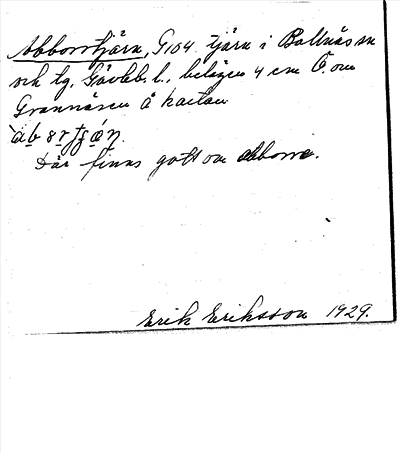 Abborrtjärn, G104. tjärn i Bollnäs sn
och tg, Gävleb. l., belägen 4 cm Ö. om
Grannäsen å kartan
Där finns gott om abborre.
Erik Eriksson 1929.